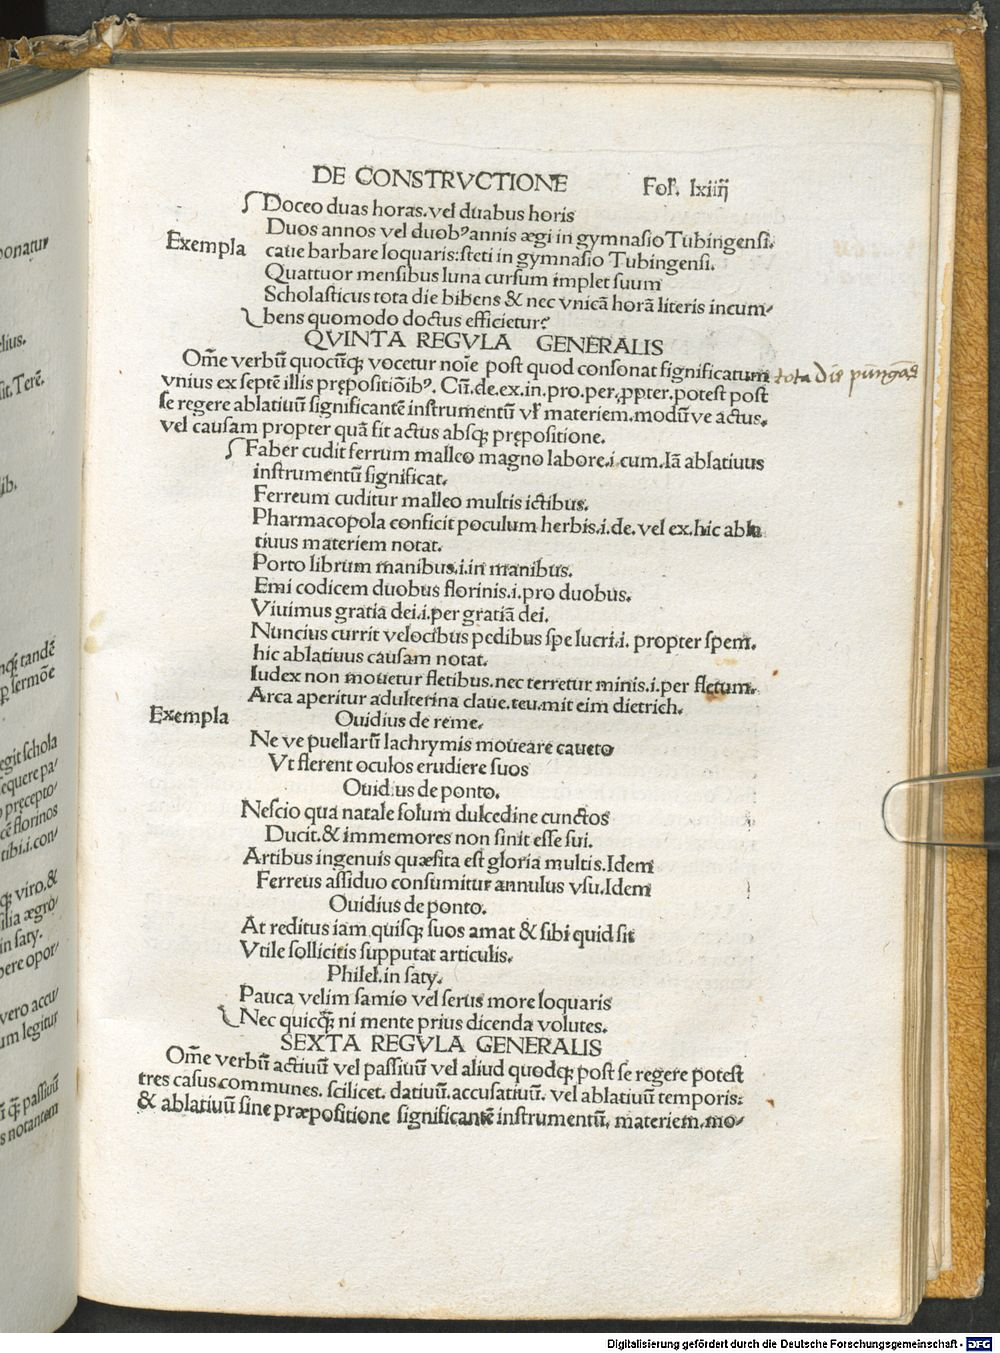 DE CONSTRVCTIONE Fol. lxiiij
Doceo duas horas.vel duabus horis
Duos annos vel duobꝰannis ægi in gymnasio Tubingensi.
Exempla caue barbare loquaris:steti in gymnasio Tubingensi.
Quattuor mensibus luna cursum implet suum
Scholasticus tota die bibens & nec vnicā horā literis incum-
bens quomodo doctus efficietur?
QVINTA REGVLA GENERALIS
Om̄e verbū quocūqꝫ vocetur noīe post quod consonat significatum
vnius ex septē illis prępositiōibꝰ. Cū.de.ex.in.pro.per.ꝓpter.potest post
se regere ablatiuū significantē instrumentū vľ materiem.modūve actus.
vel causam propter quā fit actus absqꝫ prępositione.
tota die pungas
Faber cudit ferrum malleo magno labore.i.cum.Iā ablatiuus
instrumentū significat.
Ferreum cuditur malleo multis ictibus.
Pharmacopola conficit poculum herbis.i.de.vel ex.hic abla
tiuus materiem notat.
Porto librum manibus.i.in manibus.
Emi codicem duobus florinis.i.pro duobus.
Viuimus gratia dei.i.per gratiā dei.
Nuncius currit velocibus pedibus spe lucri.i. propter spem.
hic ablatiuus causam notat.
Iudex non mouetur fletibus.nec terretur minis.i.per fletum.
Arca aperitur adulterina claue.teu.mit eim dietrich.
Exempla Ouidius de reme.
Ne ve puellarū lachrymis moueare caueto
Vt flerent oculos erudiere suos
Ouidius de ponto.
Nescio qua natale solum dulcedine cunctos
Ducit.& immemores non sinit esse sui.
Artibus ingenuis quæsita est gloria multis.Idem
Ferreus assiduo consumitur annulus vsu.Idem
Ouidius de ponto.
At reditus iam quisqꝫ suos amat & sibi quid sit
Vtile sollicitis supputat articulis.
Philel.in saty.
Pauca velim samio vel serus more loquaris
Nec quicq̄ꝫ ni mente prius dicenda volutes.
SEXTA REGVLA GENERALIS
Om̄e verbū actiuū vel passiuū vel aliud quodqꝫ post se regere potest
tres casus communes. scilicet. datiuū.accusatiuū. vel ablatiuū temporis:
& ablatiuū sine præpositione significantē instrumentū, materiem.mo-
ponatur
lius.
sit. Terē.
lib.
nqꝫ tandē
sermōe
egit schola
equere pa-
pręcepto-
cē florinos
tibi.i.con-
qꝫ viro.&
silia ægro-
in saty.
bere opor-
vero accu-
um legitur
passiuū
s notantem
Digitalisierung gefördert durch die Deutsche Forschungsgemeinschaft - DFG